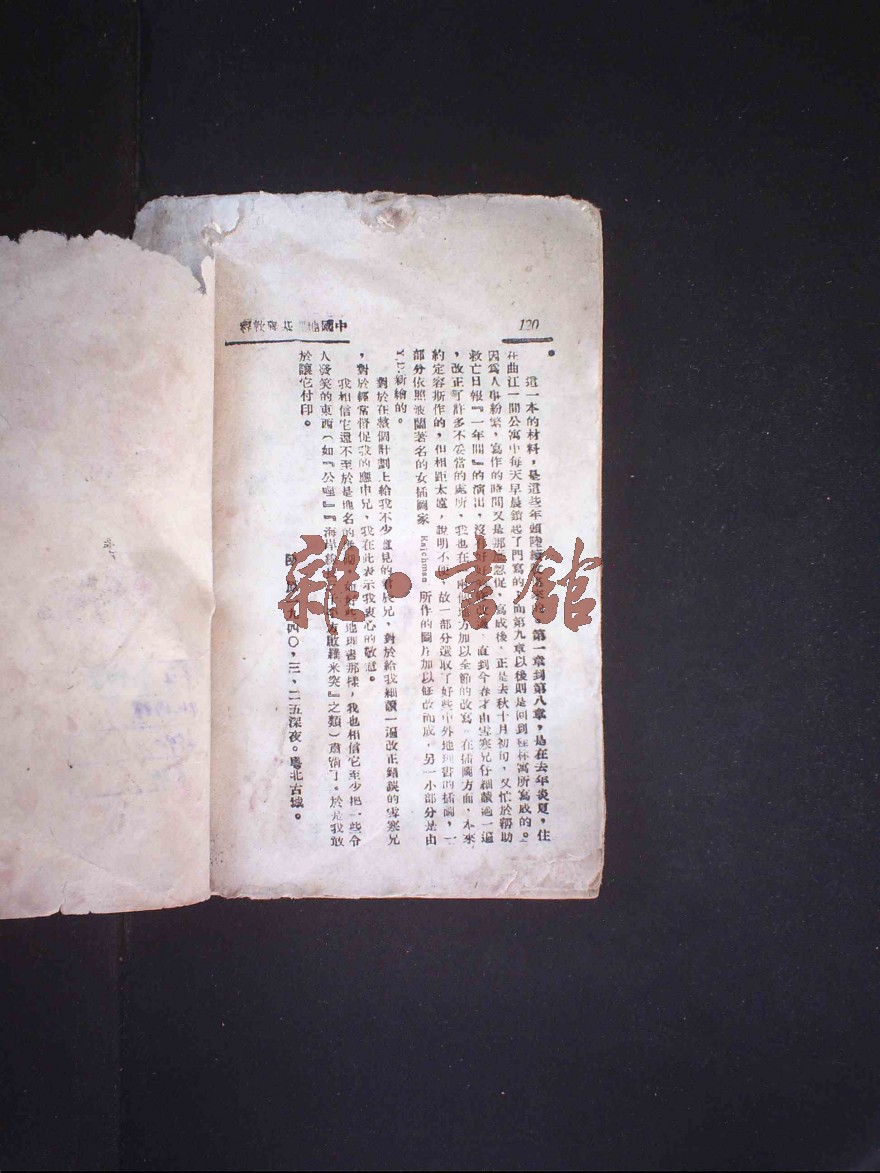 120
中國地理基礎教程
。
這一本的材料，是這些年頭陸續收集來的。第一章到第八章，是在去年炎夏，住
在曲江一間公寓中每天早晨鎖起了門寫的，而第九章以後則是回到桂林寓所寫成的。
因爲人事紛繁，寫作的時間又是那麽怱促，寫成後，正是去秋十月初旬，又忙於幫助
救亡日報『一年間』的演出，沒有好好 直到今春才由雪寒兄仔細讀過一遍
，改正了許多不妥當的處所，我也在 加以全部的改寫。在插圖方面，本來
約定容斯作的，但相距太遠，說明不便，故一部分選取了好些中外地理書的插圖，一
部分依照波蘭著名的女插圖家 Rajchman 所作的圖片加以修改而成，另一小部分是由
Y.P.新繪的。
對於在整個計劃上給我不少意見的君辰兄，對於給我細讀一遍改正錯誤的雪寒兄
，對於經常督促我的應申兄，我在此表示我衷心的敬意。
我相信它還不至於是地名的 如好些地理書那樣，我也相信它至少把一些令
人發笑的東西（如『公 』『海岸線 方啟羅米突』之類）肅清了。於是我敢
於讓它付印。
一九四〇，三，二五深夜。粤北古城。
雜·書館